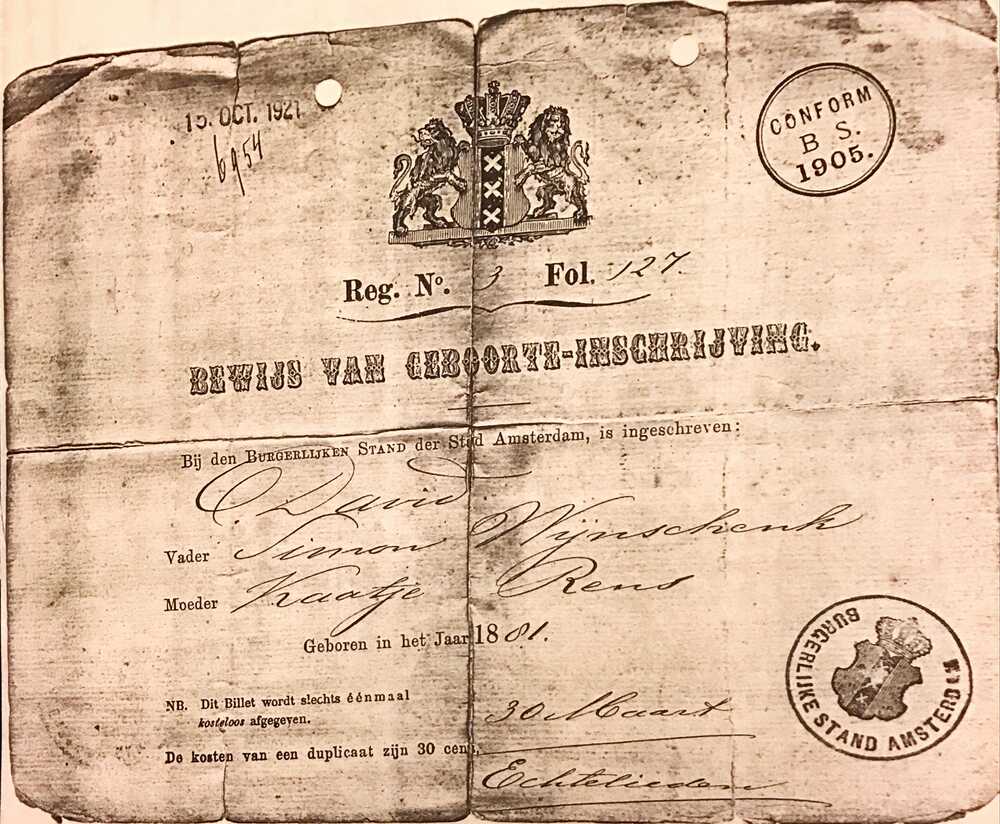 15. OCT. 1921
6954
CONFORM
B S.
1905.
Reg. No. 3 Fol. 127.
BEWIJS VAN GEBOORTE-INSCHRIJVING.
Bij den BURGERLIJKEN STAND der Stad Amsterdam, is ingeschreven:
David
Vader Simon Wijnschenk
Moeder Kaatje Rens
Geboren in het Jaar 1881.
NB. Dit Billet wordt slechts éénmaal
kosteloos afgegeven.
30 Maart
De kosten van een duplicaat zijn 30 cent,
Echtelieden
BURGERLIJKE STAND AMSTERDAM